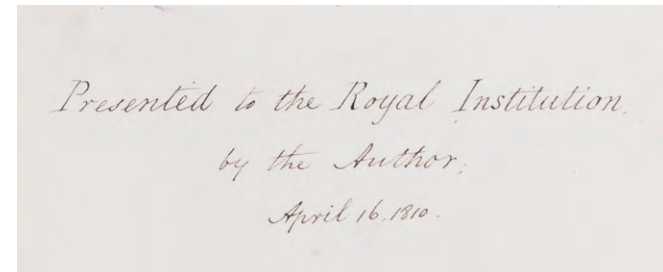 Presented to the Royal Institution.
by the Author.
April 16. 1810.